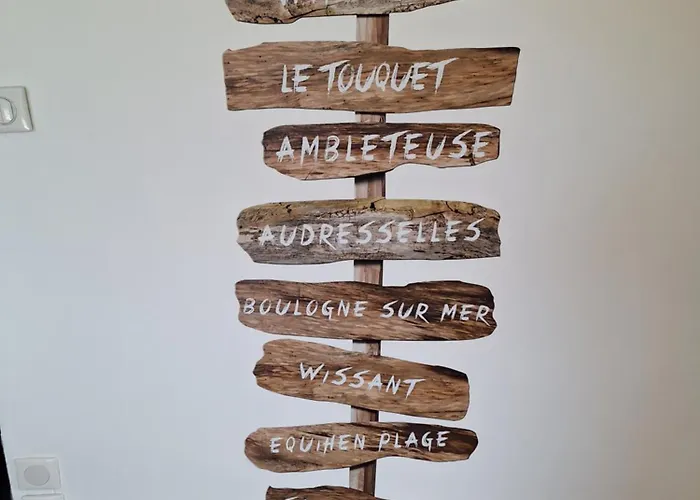 LE TOUQUET
AMBLETEUSE
AUDRESSELLES
BOULOGNE SUR MER
WISSANT
EQUIHEN PLAGE